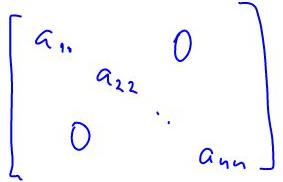 a₁₁ 0
a₂₂
⋱
0 aₙₙ